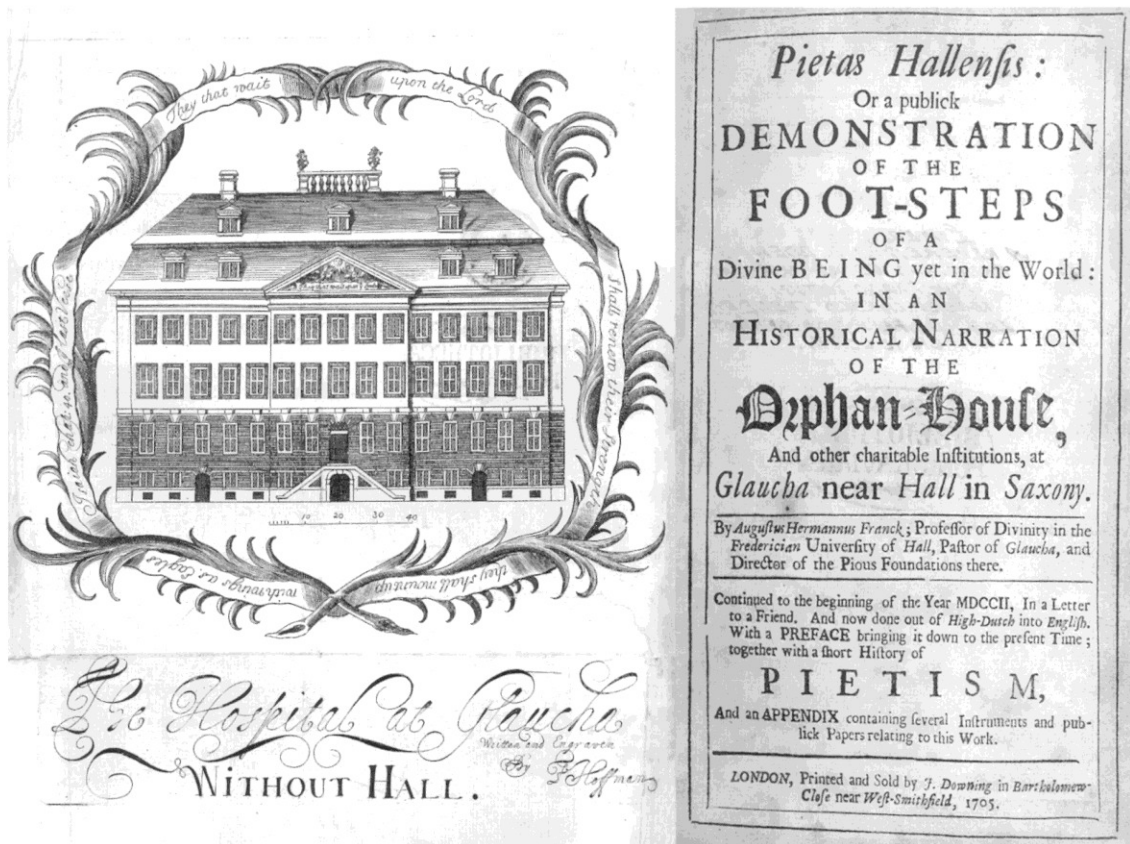 They that wait
upon the Lord
shall renew their Strength
they shall mount up
with wings as Eagles
Isaiah chap.
10 20 30 40
The Hospital at Glaucha
Written and Engraven
By Hoffman
WITHOUT HALL.
Pietas Hallenſis:
Or a publick
DEMONSTRATION
OF THE
FOOT-STEPS
OF A
Divine BEING yet in the World:
IN AN
HISTORICAL NARRATION
OF THE
Orphan-Houſe,
And other charitable Inſtitutions, at
Glaucha near Hall in Saxony.
By Auguſtus Hermannus Franck; Profeſſor of Divinity in the
Frederician Univerſity of Hall, Paſtor of Glaucha, and
Director of the Pious Foundations there.
Continued to the beginning of the Year MDCCII, In a Letter
to a Friend. And now done out of High-Dutch into Engliſh.
With a PREFACE bringing it down to the preſent Time;
together with a ſhort Hiſtory of
PIETISM,
And an APPENDIX containing ſeveral Inſtruments and pub-
lick Papers relating to this Work.
LONDON, Printed and Sold by J. Downing in Bartholomew-
Cloſe near Weſt-Smithfield, 1705.